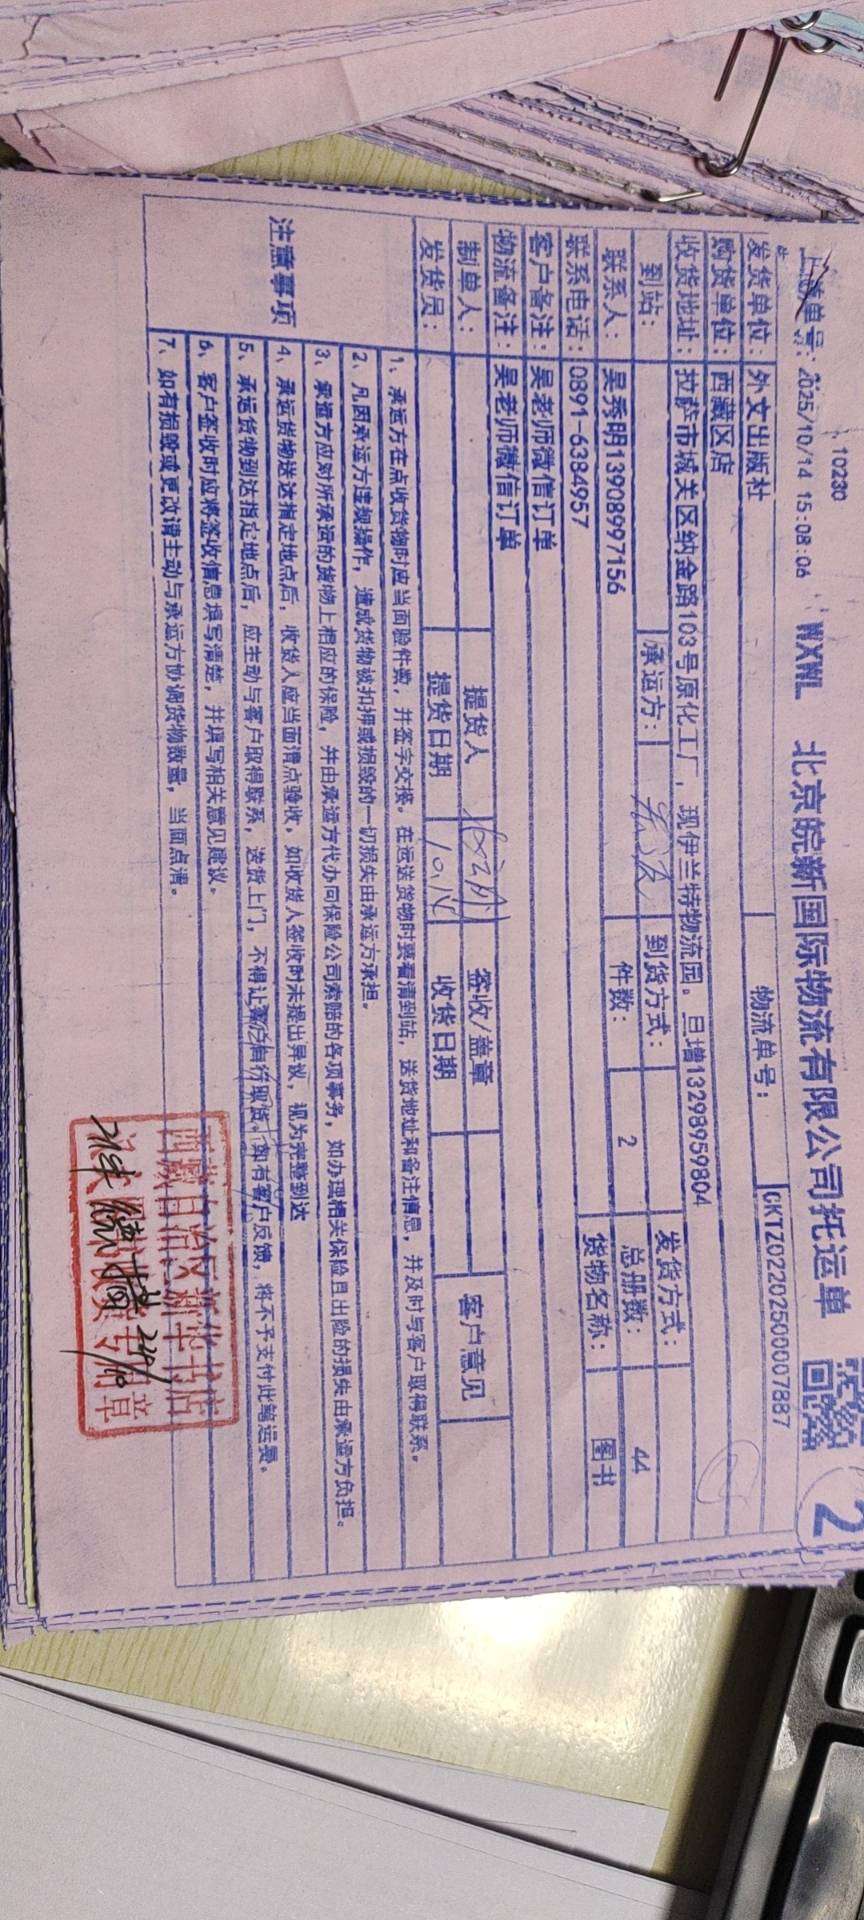 10230
2025/10/14 15:08:06 WXWL 北京皖新国际物流有限公司托运单 2
发货单位: 外文出版社 物流单号: CKTZ02202500007887
购货单位: 西藏区店
收货地址: 拉萨市城关区纳金路103号原化工厂，现伊兰特物流园。旦增13298959804
到站: 承运方: 到货方式: 发货方式:
联系人: 吴秀明13908997156 件数: 2 总册数: 44
联系电话: 0891-6384957 货物名称: 图书
客户备注: 吴老师微信订单
物流备注: 吴老师微信订单
制单人: 提货人 签收/盖章 客户意见
发货员: 提货日期 10.14 收货日期
注意事项
1、承运方在点收货物时应当面验件数，并签字交接。在运送货物时要看清到站，送货地址和备注信息，并及时与客户取得联系。
2、凡因承运方违规操作，造成货物被扣押或损毁的一切损失由承运方承担。
3、承运方应对所承运的货物上相应的保险，并由承运方代办向保险公司索赔的各项事务，如办理相关保险且出险的损失由承运方负担。
4、承运货物送达指定地点后，收货人应当面清点验收，如收货人签收时未提出异议，视为完整到达
5、承运货物到达指定地点后，应主动与客户取得联系，送货上门，不得让客户自行取货。如有客户反馈，将不予支付此笔运费。
6、客户签收时应将签收信息填写清楚，并填写相关意见建议。
7、如有损毁或更改请主动与承运方协调货物数量，当面点清。
西藏自治区新华书店